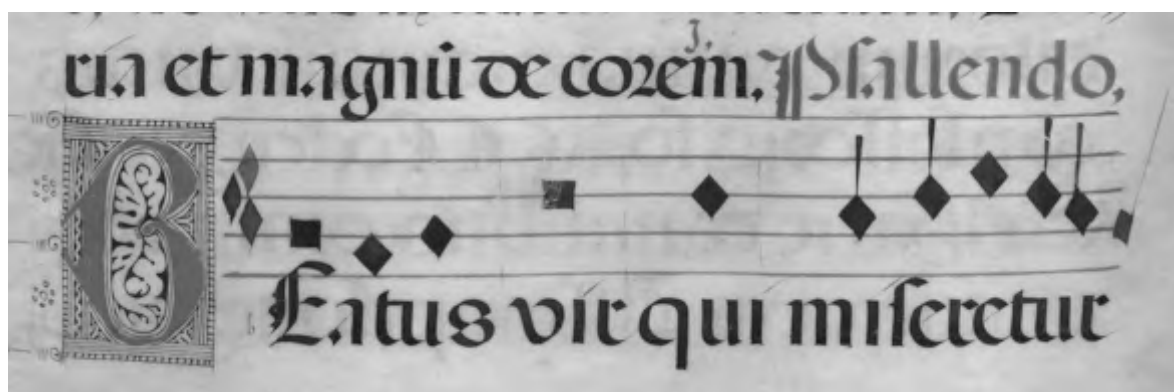 ria et magnū de corem. Pſallendo,
BEatus vir qui miſeretur